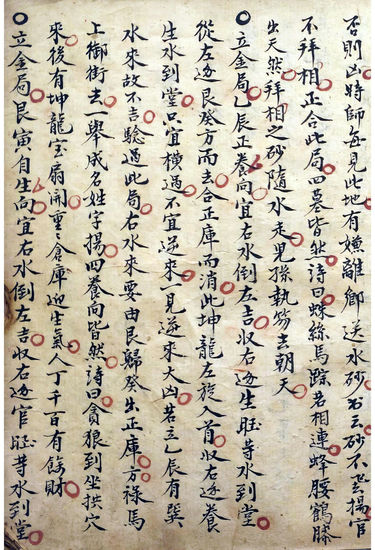 否則凶時師每見此地有嫌離鄉送水砂名云砂不登揚官
不拜相正合此局四墓皆然詩曰蛛絲馬踪若相連蜂腰鶴膝
出天然拜相之砂隨水走兒孫執笏去朝天
立金局乙辰正養向宜右水倒左吉收右邊生旺等水到堂
從左邊艮癸方而去合正庫而消此坤龍左旋入首收右邊養
生水到堂只宜横過不宜逆來一見逆來大凶若立乙辰有巽
水來故不吉驗過此局右水來要由艮歸癸出正庫方祿馬
上御街去一舉成名姓字揚四養向皆然詩曰貪狼到坐拱穴
來後有坤龍宝扇開重々倉庫迎生氣人丁千百有餘財
立金局艮寅自生向宜右水倒左吉收右邊官旺等水到堂